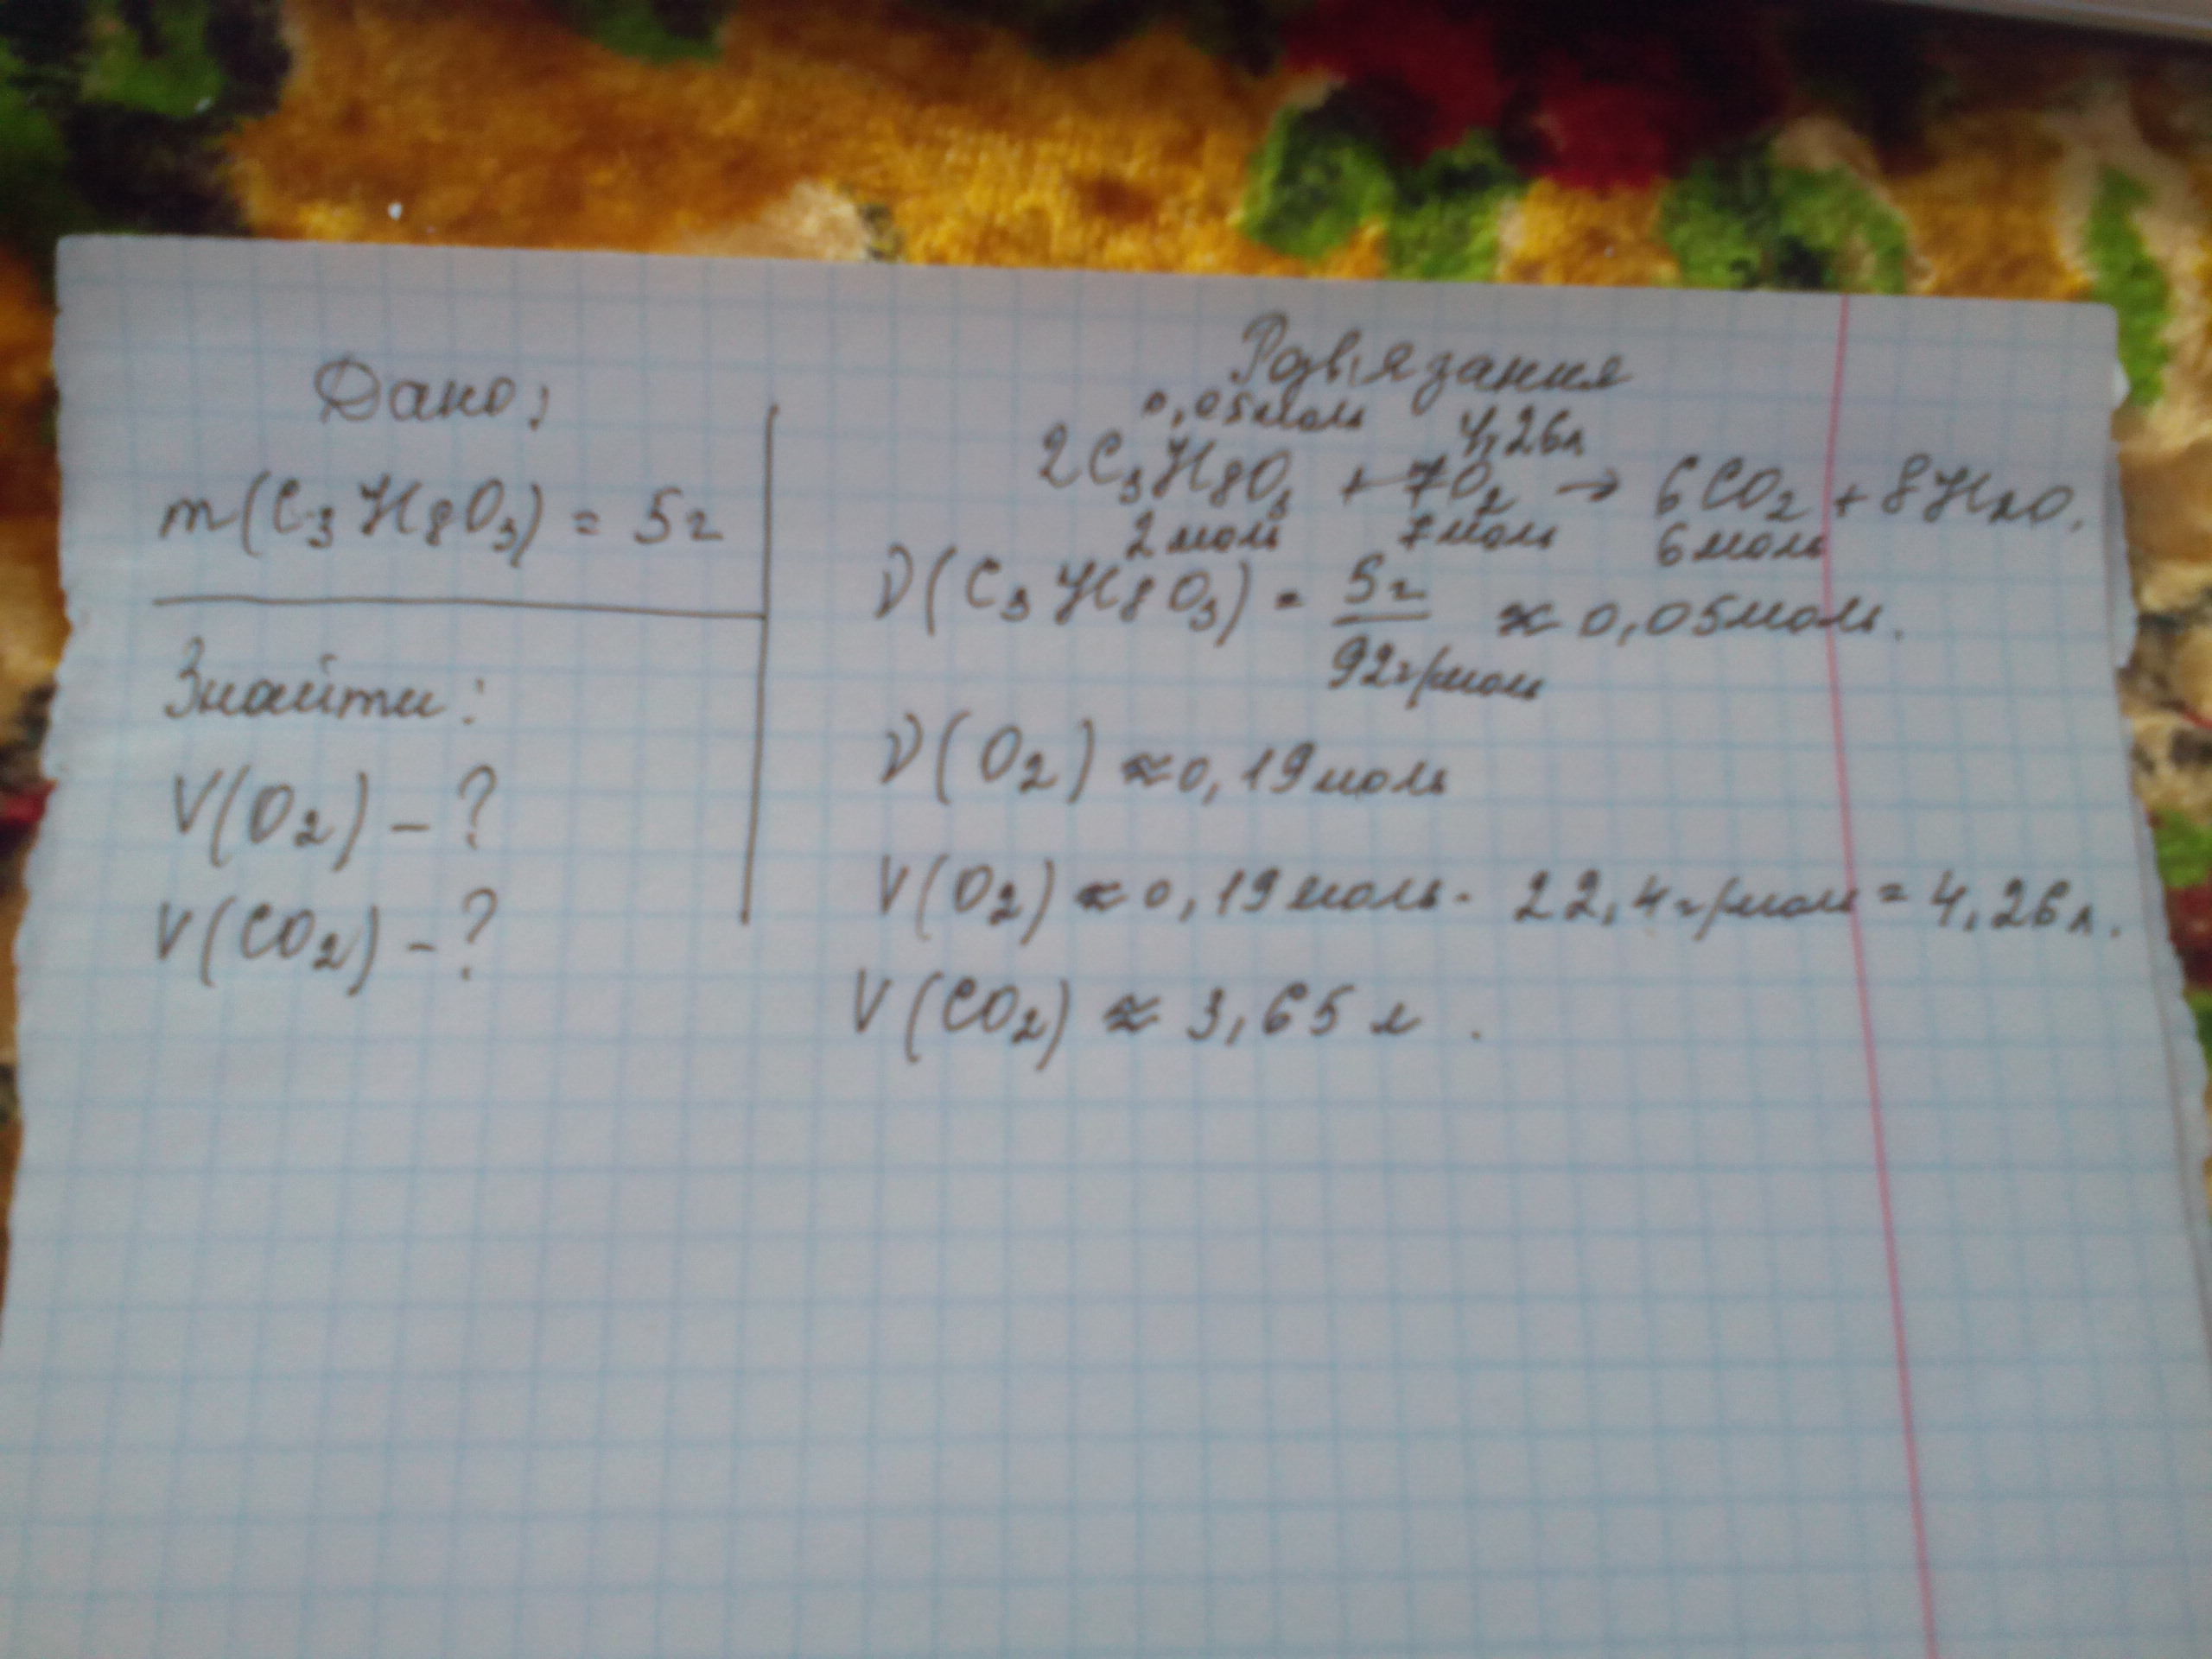 Дано:
m(C₃H₈O₃) = 5г
Знайти:
V(O₂) - ?
V(CO₂) - ?
Розв'язання
0,05моль 4,26л
2C₃H₈O₃ + 7O₂ → 6CO₂ + 8H₂O.
2моль 7моль 6моль
ν(C₃H₈O₃) = 5г / 92г/моль ≈ 0,05моль.
ν(O₂) ≈ 0,19моль
V(O₂) ≈ 0,19моль · 22,4г/моль = 4,26л.
V(CO₂) ≈ 3,65л.